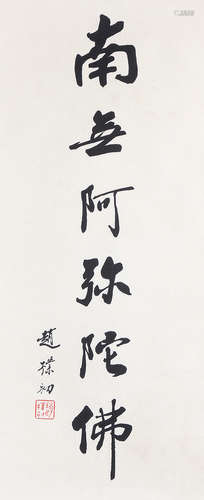 南無阿弥陀佛
趙樸初